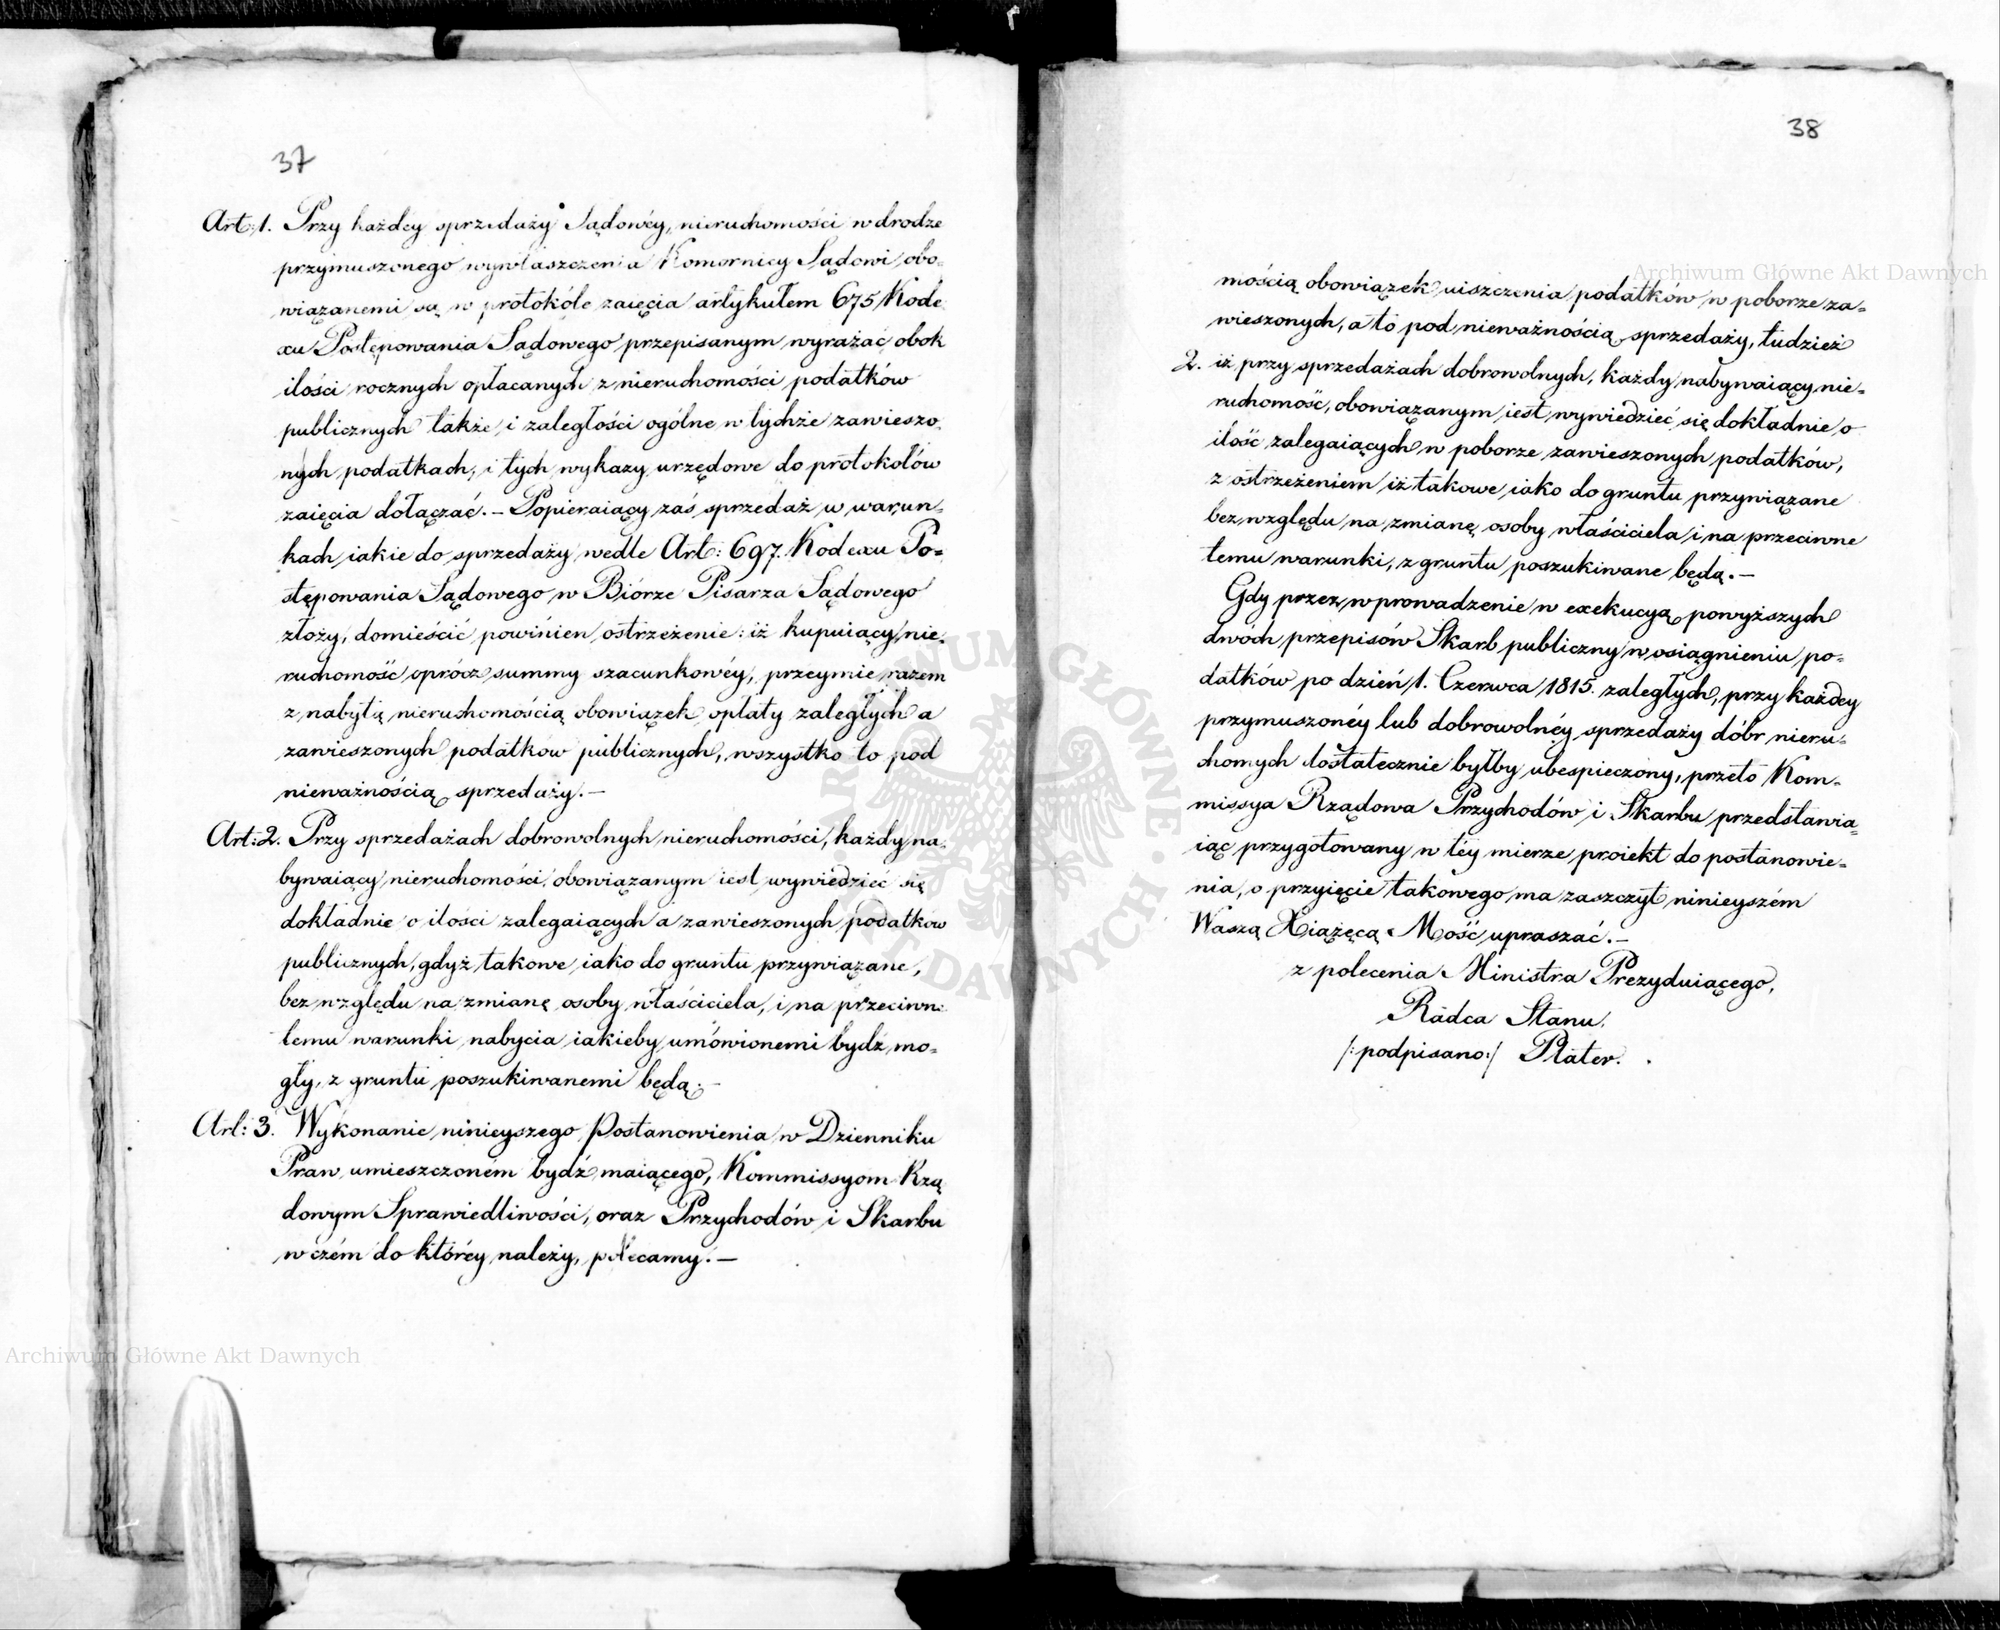 37
Art: 1. Przy każdey sprzedaży Sądowéy, nieruchomości w drodze
przymuszonego wywłaszczenia Komornicy Sądowi, obo-
wiązanemi są w protokóle zaięcia artykułem 675 Kode
xu Postępowania Sądowego przepisanym wyrażać obok
ilości rocznych opłacanych z nieruchomości podatków
publicznych także i zaległości ogólne w tychże zawieszo-
nych podatkach, i tych wykazy urzędowe do protokołów
zaięcia dołączać. – Popieraiący zaś sprzedaż w warun-
kach iakie do sprzedaży wedle Art: 697. Kodexu Po-
stępowania Sądowego w Biórze Pisarza Sądowego
złoży, domieścić powinien ostrzeżenie: iż kupuiący nie-
ruchomość oprócz summy szacunkowéy, przeymie razem
z nabytą nieruchomością obowiązek opłaty zaległych a
zawieszonych podatkow publicznych, wszystko to pod
nieważnością sprzedaży. –
Art: 2. Przy sprzedażach dobrowolnych nieruchomości, każdy na-
bywaiący nieruchomości obowiązanym iest wywiedzieć się
dokładnie o ilości zalegaiących a zawieszonych podatkow
publicznych, gdyż takowe iako do gruntu przywiązane,
bez względu na zmianę osoby właściciela, i na przeciwne
temu warunki nabycia iakieby umówionemi bydź mo-
gły, z gruntu poszukiwanemi będą. –
Art: 3. Wykonanie ninieyszego Postanowienia w Dzienniku
Praw umieszczoném bydź maiącego, Kommissyom Rzą
dowym Sprawiedliwości, oraz Przychodów i Skarbu
w czém do któréy należy, polecamy. –
38
mością obowiązek uiszczenia podatków w poborze za-
wieszonych, a to pod nieważnością sprzedaży, tudzież
2. iż przy sprzedażach dobrowolnych, każdy nabywaiący nie-
ruchomość, obowiązanym iest wywiedzieć się dokładnie o
ilość zalegaiących w poborze zawieszonych podatków,
z ostrzeżeniem iż takowe iako do gruntu przywiązane
bez względu na zmianę osoby właściciela i na przeciwne
temu warunki, z gruntu poszukiwane będą. –
Gdy przez wprowadzenie w exekucyą powyższych
dwóch przepisów Skarb publiczny w osiągnieniu po-
datków po dzień 1. Czerwca 1815. zaległych, przy każdey
przymuszonéy lub dobrowolnéy sprzedaży dóbr nieru-
chomych dostatecznie byłby ubespieczony, przeto Kom-
missya Rządowa Przychodów i Skarbu przedstawia-
iąc przygotowany w téy mierze proiekt do postanowie-
nia, o przyięcie takowego ma zaszczyt ninieyszém
Waszą Xiążęcą Mość upraszać. –
z polecenia Ministra Prezyduiącego,
Radca Stanu.
/: podpisano :/ Plater.
Archiwum Główne Akt Dawnych
Archiwum Główne Akt Dawnych
ARCHIWUM GŁÓWNE AKT DAWNYCH